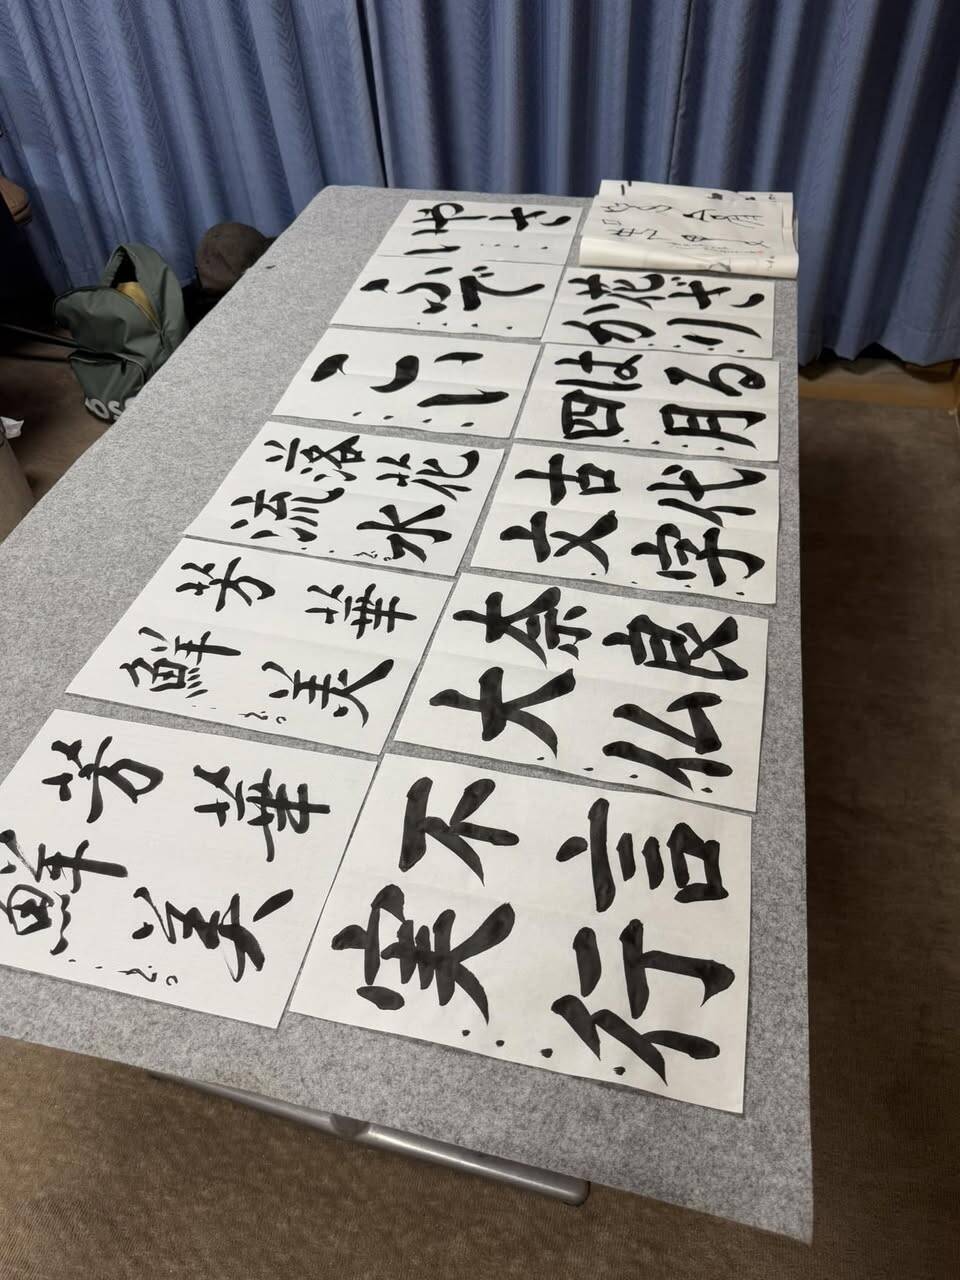 やさ
い
ふで
こい
落花
流水
芳華
鮮美
芳華
鮮美
花ざ
かり
はる
四月
古代
文字
奈良
大仏
不言
実行